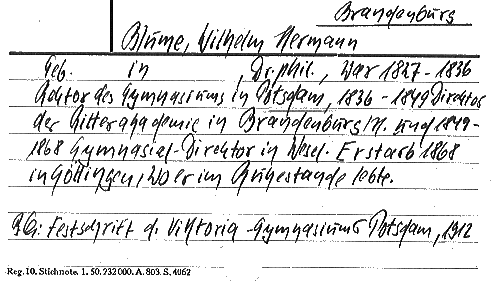 Brandenburg
Blume, Wilhelm Hermann
Geb. in , Dr. phil., war 1827-1836
Rektor des Gymnasiums in Potsdam, 1836-1849 Direktor
der Ritterakademie in Brandenburg/H. und 1849-
1868 Gymnasial-Direktor in Wesel. Er starb 1868
in Göttingen, wo er im Ruhestande lebte.
BG: Festschrift d. Viktoria-Gymnasiums Potsdam, 1912
Reg. 10. Stichnote. 1. 50. 232000. A. 803. S. 4062